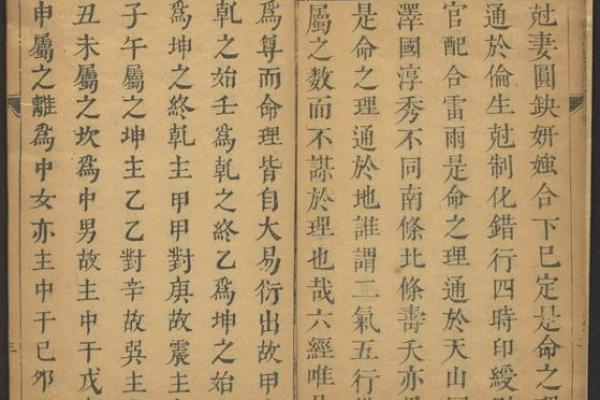 尅妻圓缺妍媸合下巳定是命之理
通於倫生尅制化錯行四時印綬
官配合雷雨是命之理通於天山
澤國淳秀不同南條北條壽夭亦
是命之理通於地誰謂二氣五行
屬之数而不謀於理也哉六經唯
為尊而命理皆自大易衍出故甲
乹之始壬為乹之終乙為坤之始
為坤之終乹主甲甲對庚故震主
子午屬之坤主乙乙對辛故巽主
丑未屬之坎為中男故主中干戊
申屬之離為中女亦主中干巳夘